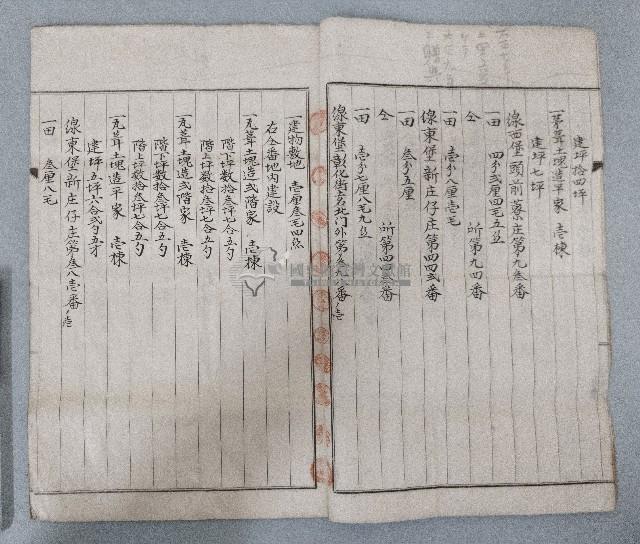 建坪拾四坪
一茅葺土塊造平家　壱棟
建坪七坪
線西堡頭前藔庄第九叁番
一田　四分弐厘四毛五糸
仝　所第九四番
一田　壱分八厘壱毛
線東堡新庄仔庄第四四弐番
仝　所第四四叁番
一田　叁分五厘
一田　壱分七厘八毛九糸
線東堡彰化街土名北門外第
一建物敷地　壱厘叁毛四糸
右仝番地内建設
一瓦葺土塊造弐階家　壱棟
階下坪数拾叁坪七合五勺
階上坪数拾叁坪七合五勺
一瓦葺土塊造弐階家　壱棟
階下坪数拾叁坪七合五勺
階上坪数拾叁坪七合五勺
一瓦葺土塊造平家　壱棟
建坪五坪六合弐勺五才
線東堡新庄仔庄第叁八壱番ノ壱
一田　叁厘八毛